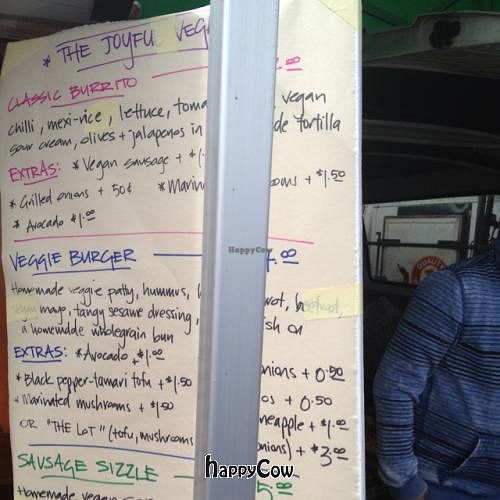 * THE JOYFU VEG
CLASSIC BURRITO
chilli, mexi-rice, lettuce, toma vegan
sour cream, olives + jalapenos in de tortilla
EXTRAS: * Vegan sausage + $1.
* Grilled onions + 50¢ * Marin oms + $1.50
* Avocado $1.00
VEGGIE BURGER
Homemade veggie patty, hummus, rot, beetroot,
vegan mayo, tangy sesame dressing, ish on
a homemade wholegrain bun
EXTRAS: * Avocado + $1.00 onions + 0.50
* Black pepper-tamari tofu + $1.50 os + 0.50
+ Marinated mushrooms + $1.50 neapple + $1.00
OR "THE LOT" (tofu, mushrooms onions) + $3.00
SAUSAGE SIZZLE 5.00
Homemade vegan
QUALITY
HappyCow
HappyCow